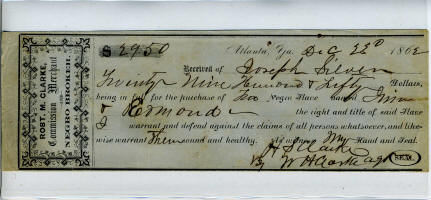 ROBT. M. CLARKE,
Commission Merchant
NEGRO BROKER.
$2950
Atlanta, Ga. Dec 22d 1862
Received of Joseph Silver
Twenty Nine Hundred & Fifty Dollars,
being in full for the purchase of Two Negro Slave named
& Redmond the right and title of said Slave
I warrant and defend against the claims of all persons whatsoever, and like-
wise warrant Them sound and healthy. As witness My Hand and Seal.
Clarke
By W H Clarke agt SEAL.